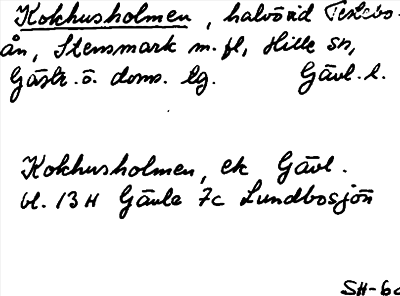 Kokhusholmen, halvö vid Testebo-
ån, Stensmark m.fl, Hille sn,
Gästr. ö. doms. lg. Gävl. l.
Kokhusholmen, ek Gävl.
bl. 13 H Gävle 7c Lundbosjön
SH-60